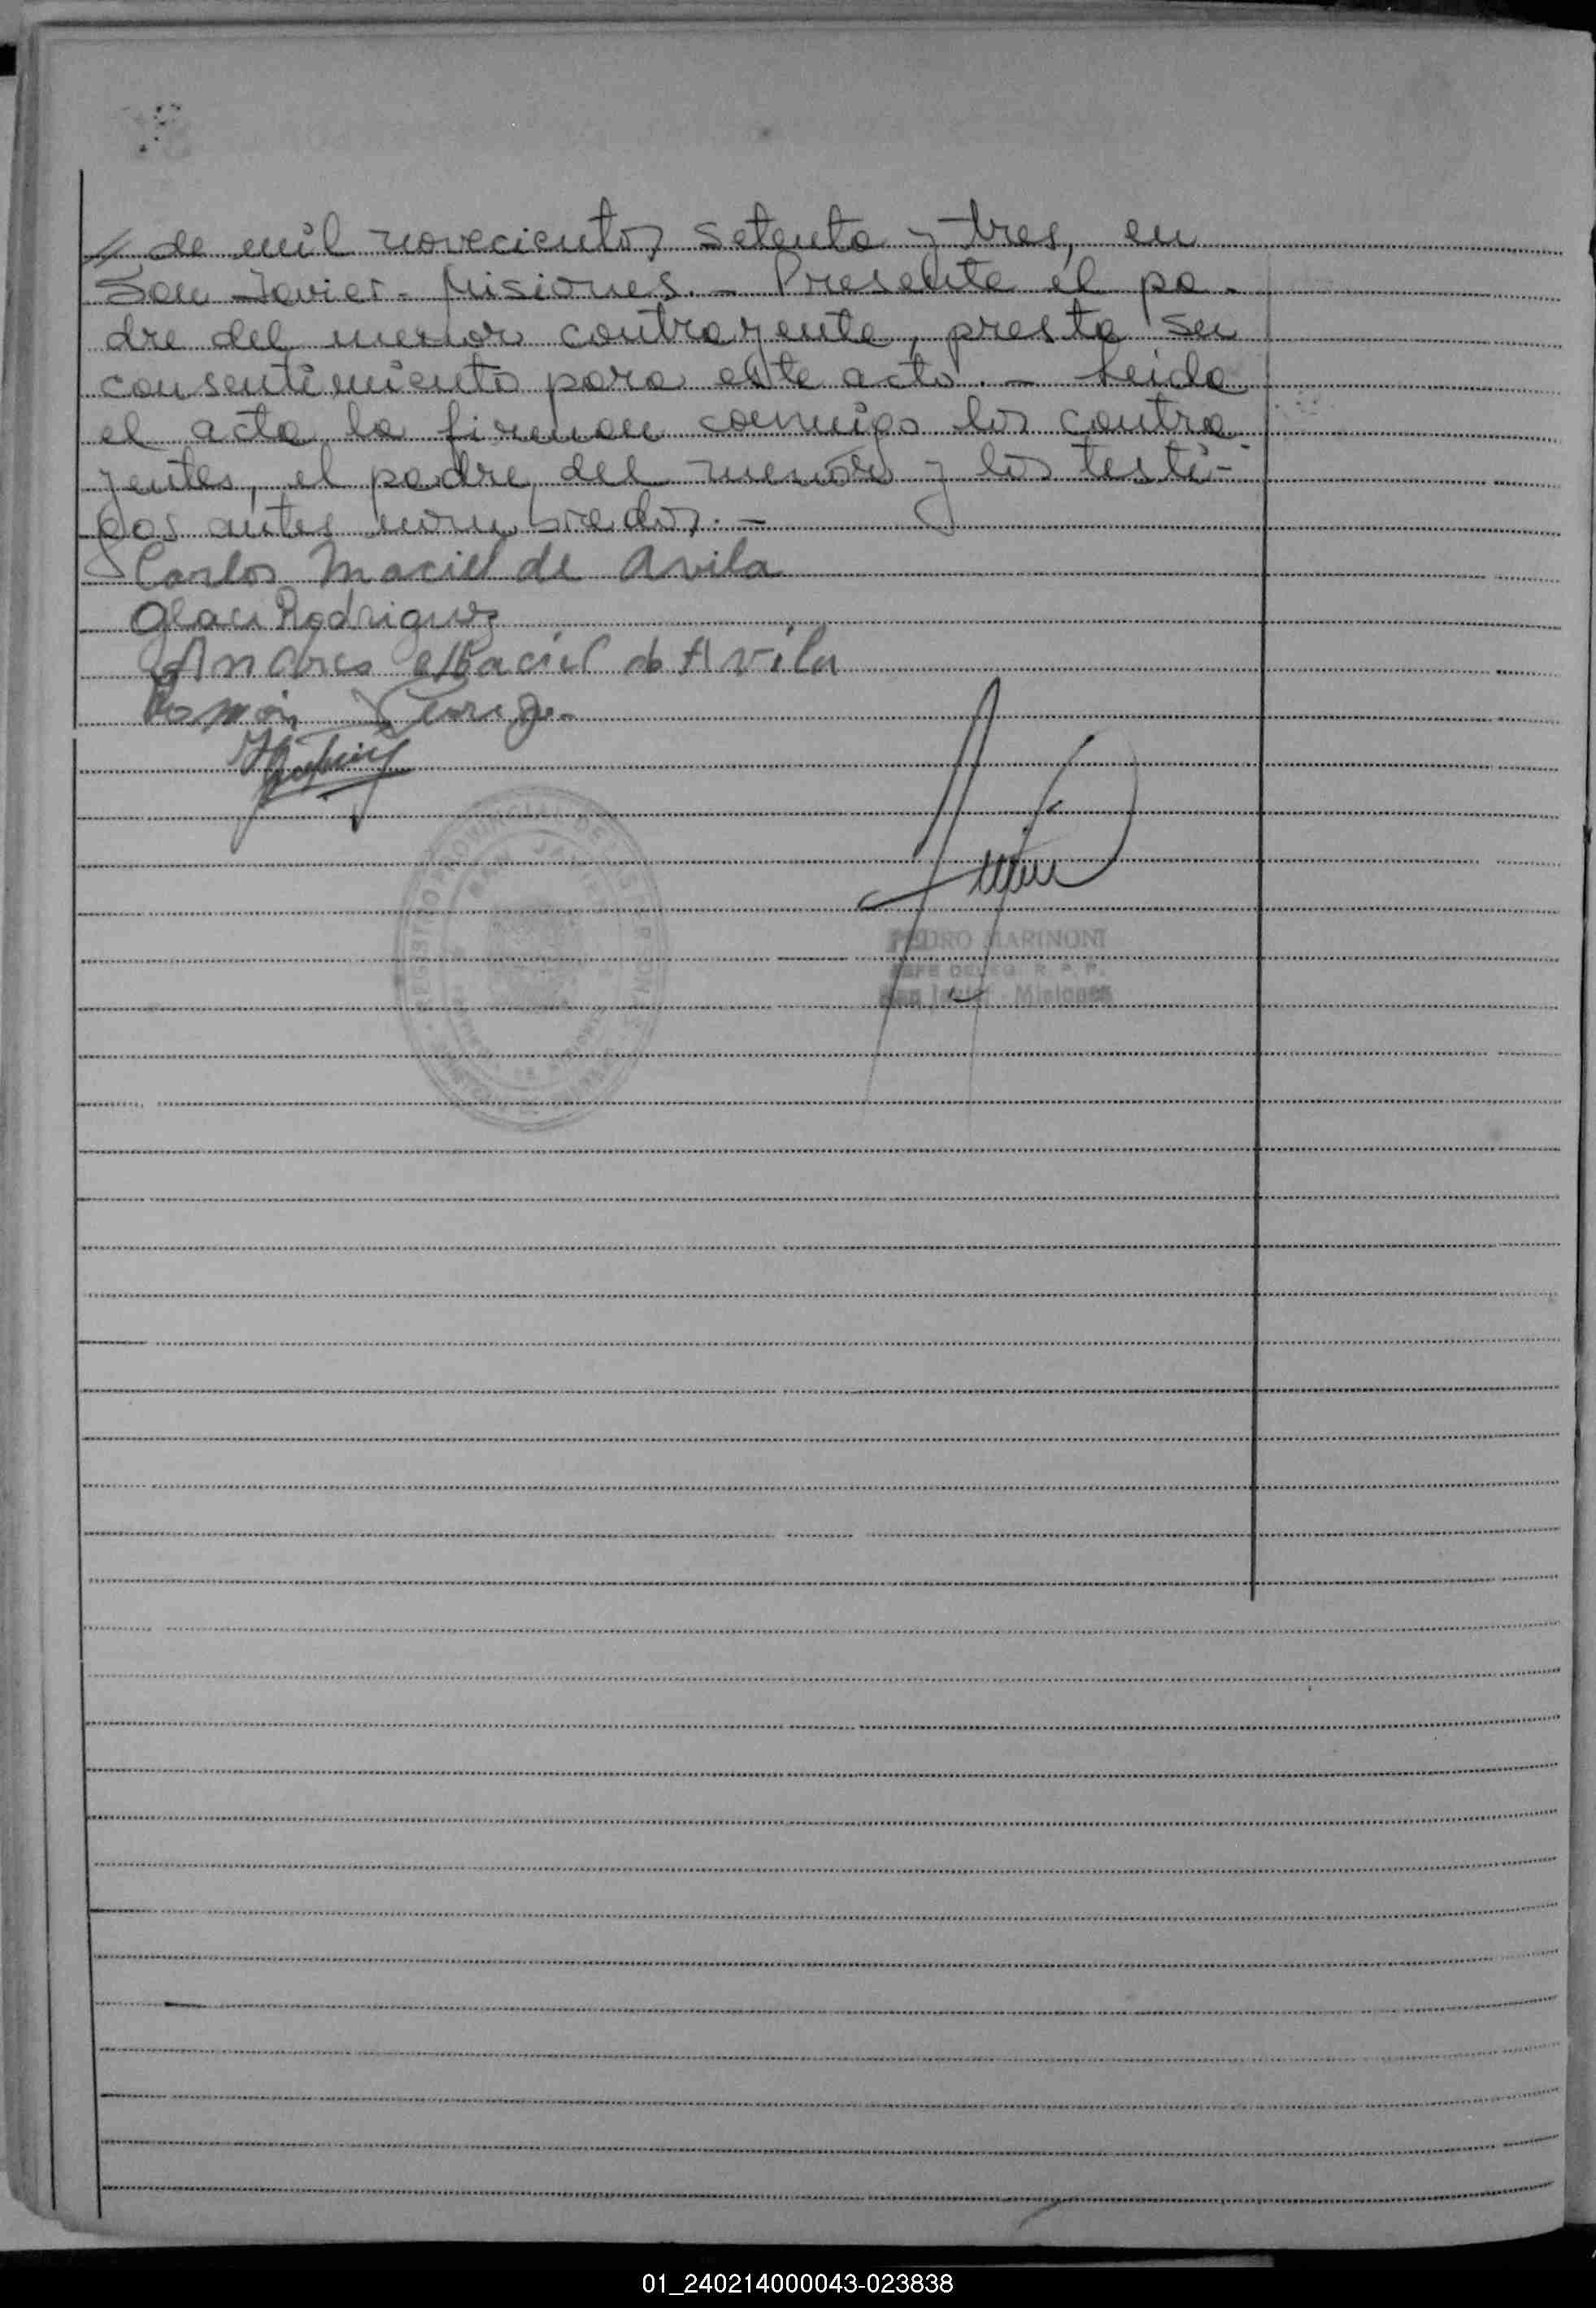 // de mil novecientos setenta y tres, en
San Javier - Misiones. - Presente el pa-
dre del menor contrayente, presta su
consentimiento para este acto. - Leida
el acta la firman conmigo los contra
yentes, el padre del menor y los testi-
gos antes nombrados. -
Carlos Maciel de Avila
Glaci Rodriguez
Andres Maciel de Avila
Ramón
REGISTRO PROVINCIAL DE LAS PERSONAS
SAN JAVIER
PEDRO MARINONI
JEFE DELEG. R. P. P.
San Javier - Misiones
01_240214000043-023838